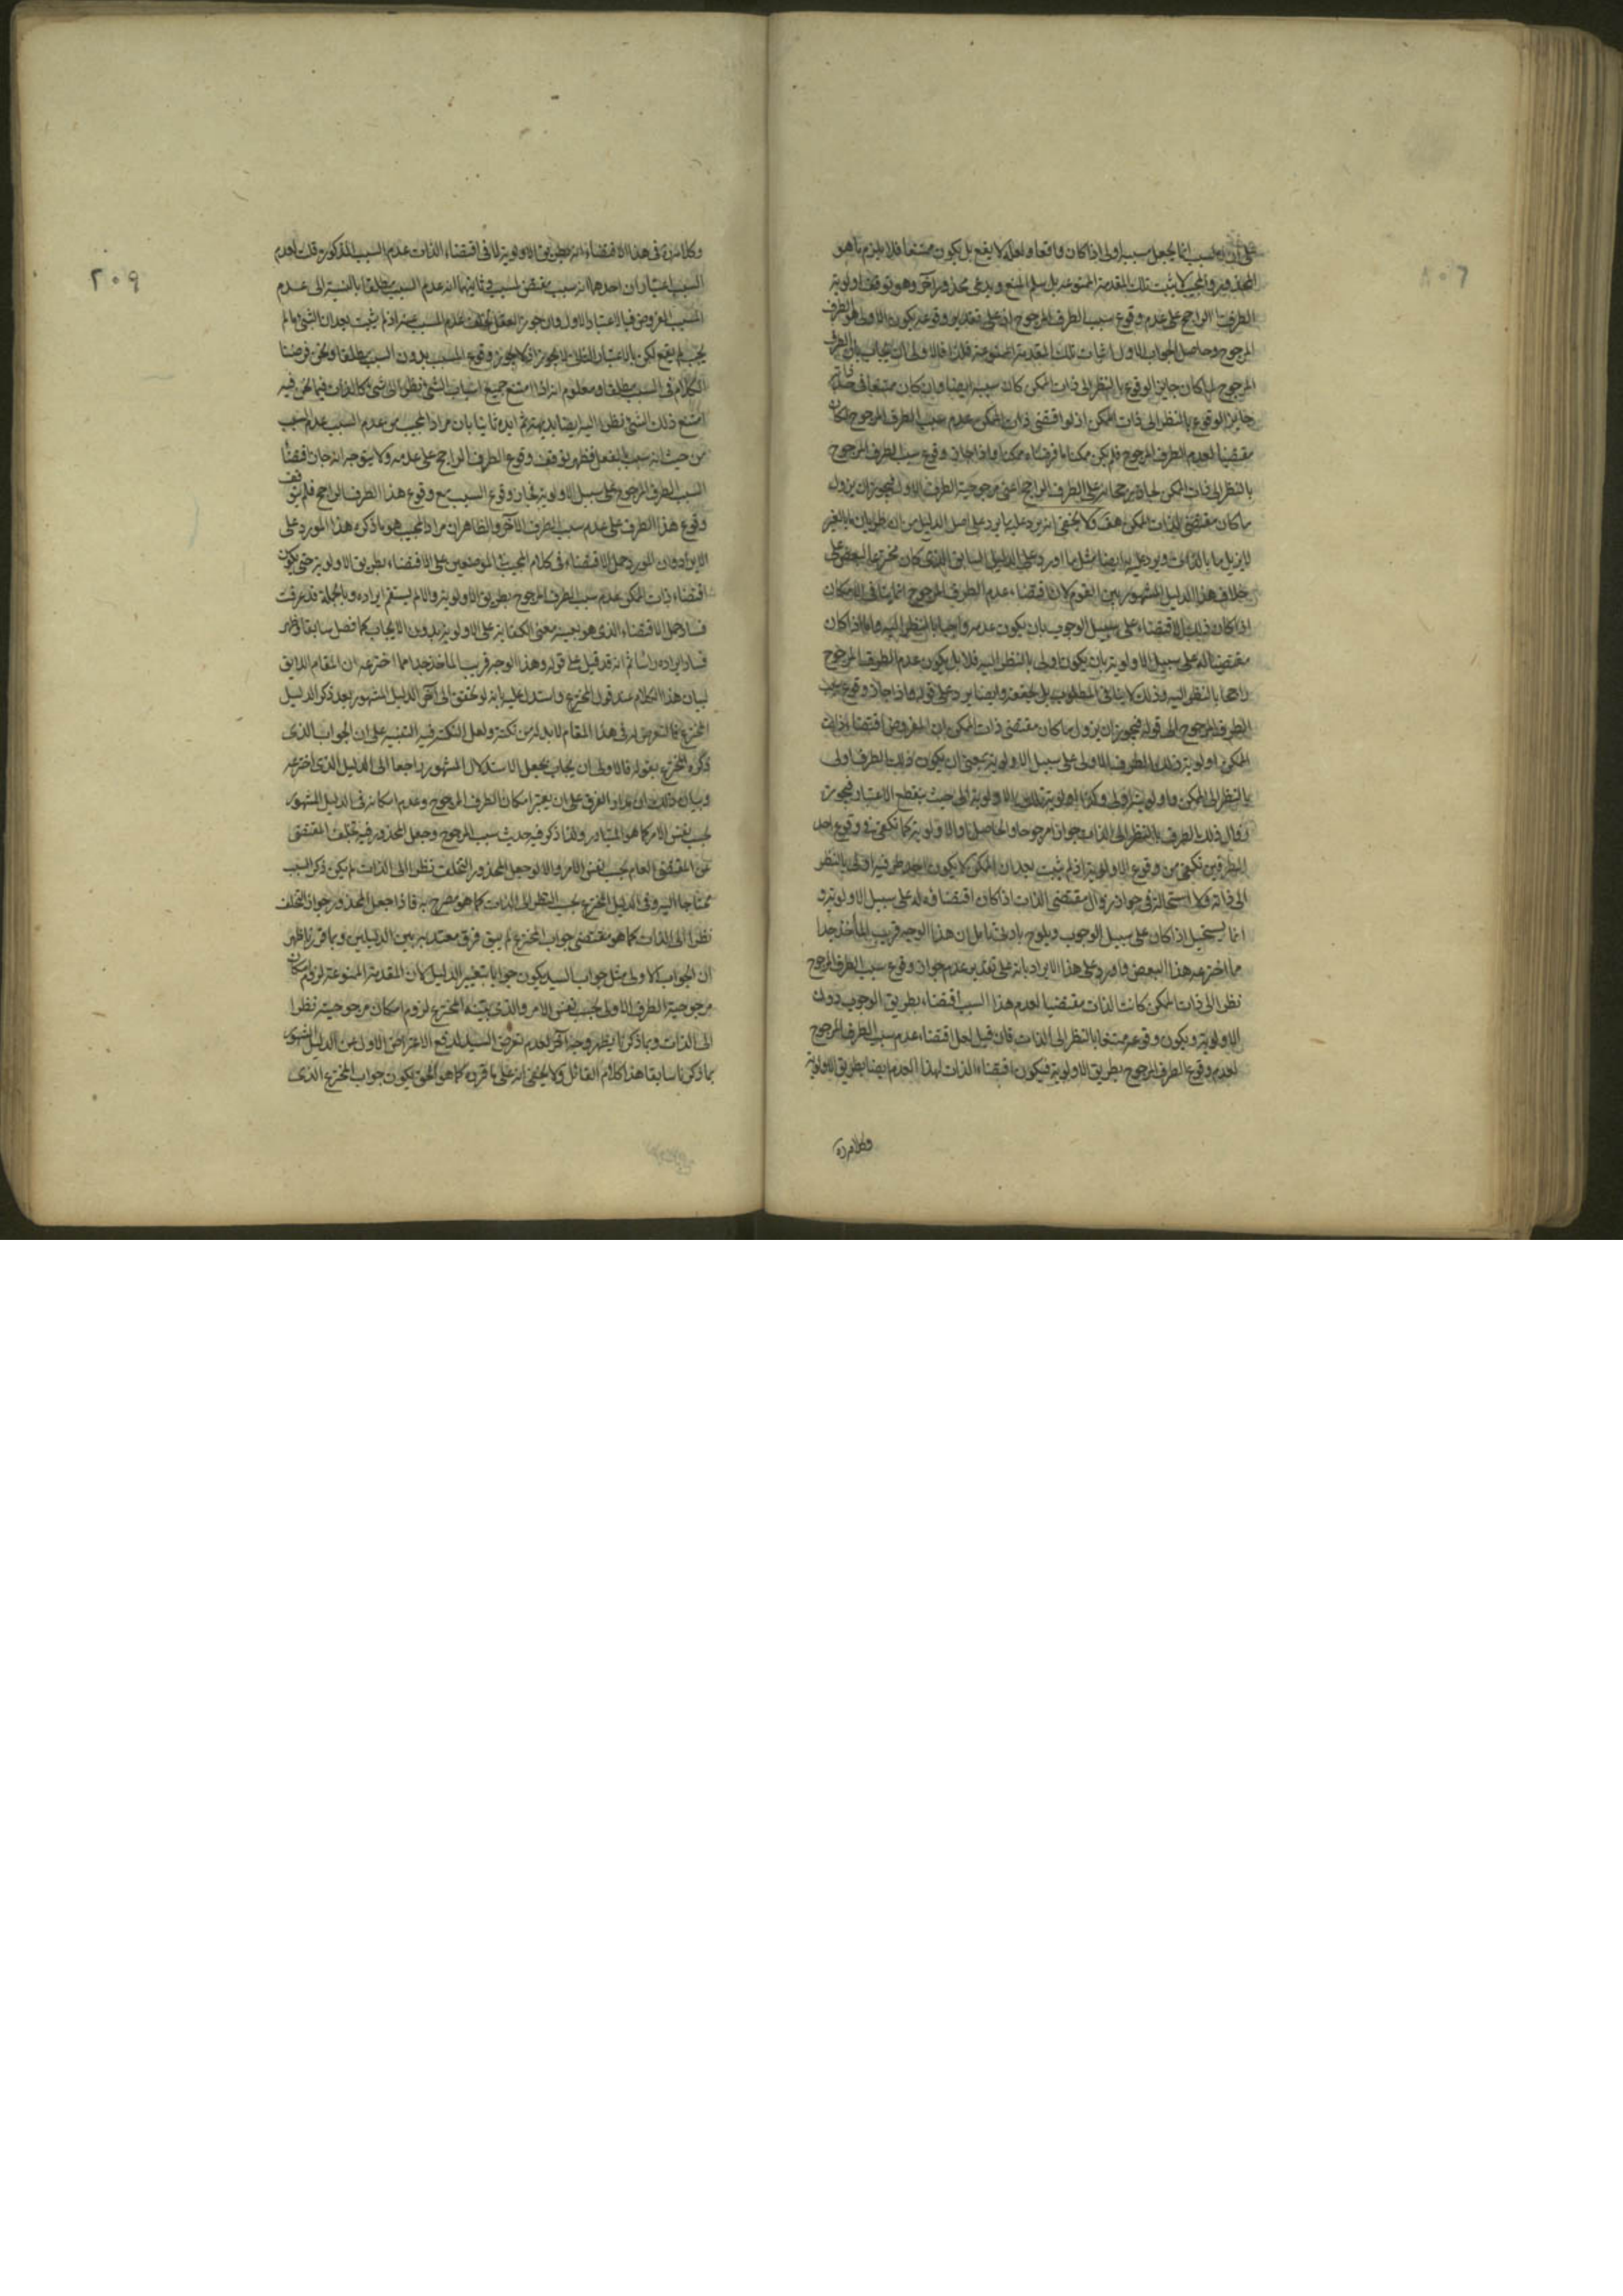 على ان السبب انما يجعل سببا اولى اذا كان واقعا ولعله لا يقع بل يكون ممتنعا فلا يلزم ما هو
المحذور والمجيب لا يثبت تلك المقدمة الممنوعة بل سلم المنع ويدعى محذورا آخر وهو توقف اولوية
الطرف الراجح على عدم وقوع سبب الطرف المرجوح اذ على تقدير وقوعه يكون الاولى هو الطرف
المرجوح وحاصل الجواب الاول اثبات تلك المقدمة الممنوعة فالاولى ان يجاب بان الطرف
المرجوح لما كان جائز الوقوع بالنظر الى ذات الممكن كان سببه ايضا وان كان ممتنعا فى حد ذاته
جائز الوقوع بالنظر الى ذات الممكن اذ لو اقتضى ذات الممكن عدم سبب الطرف المرجوح لكان
مقتضيا لعدم الطرف المرجوح فلم يكن ممكنا ما فرضناه ممكنا واذا جاز وقوع سبب الطرف المرجوح
بالنظر الى ذات الممكن لجاز رجحانه على الطرف الراجح اعنى مرجوحية الطرف الاولى فيجوز ان يزول
ما كان مقتضى لذات الممكن هف ولا يخفى انه يرد عليه ما يرد على اصل الدليل من ان طريان ما بالغير
لا يزيل ما بالذات ويرد عليه ايضا مثل ما اورد على الدليل السابق الذى كان مخترعا لبعض على
خلاف هذا الدليل المشهور بين القوم لان اقتضاء عدم الطرف المرجوح انما ينافى الامكان
اذا كان ذلك الاقتضاء على سبيل الوجوب بان يكون عدمه واجبا بالنظر اليه واما اذا كان
مقتضيا له على سبيل الاولوية بان يكون اولى بالنظر اليه فلا بل يكون عدم الطرف المرجوح
راجحا بالنظر اليه وذلك لا ينافى المطلوب بل يحققه وايضا يرد على قوله واذا جاز وقوع سبب
الطرف المرجوح الى قوله فيجوز ان يزول ما كان مقتضى ذات الممكن ان المفروض اقتضاء ذات
الممكن اولوية ذلك الطرف الاولى على سبيل الاولوية بمعنى ان يكون ذلك الطرف اولى
بالنظر الى الممكن واولويته اولى وكذا اولوية تلك الاولوية الى حيث ينقطع الاعتبار فيجوز
زوال ذلك الطرف بالنظر الى الذات جوازا مرجوحا والحاصل ان الاولوية كما تكفى فى وقوع احد
الطرفين تكفى من وقوع الاولوية اذ لم يثبت بعد ان الممكن لا يكون احد طرفيه اولى بالنظر
الى ذاته ولا استحالة فى جواز زوال مقتضى الذات اذا كان اقتضاؤه له على سبيل الاولوية و
انما يستحيل اذا كان على سبيل الوجوب ويلوح بادنى تأمل ان هذا الوجه قريب المأخذ جدا
مما اخترعه هذا البعض واورد على هذا الايراد بانه على تقدير عدم جواز وقوع سبب الطرف المرجوح
نظرا الى ذات الممكن كانت الذات مقتضيا لعدم هذا السبب اقتضاء بطريق الوجوب دون
الاولوية ويكون وقوعه ممتنعا بالنظر الى الذات فان قيل لعل اقتضاء عدم سبب الطرف المرجوح
لعدم وقوع الطرف المرجوح بطريق الاولوية فيكون اقتضاء الذات لهذا العدم ايضا بطريق الاولوية
وكلامنا
٢٠٩
وكلامنا فى هذا الاقتضاء انه بطريق الاولوية لا فى اقتضاء الذات عدم السبب المذكور قلت لعدم
السبب اعتباران احدهما انه سبب يقتضى لمسبب وثانيهما انه عدم السبب مطلقا بالنسبة الى عدم
المسبب المفروض فبالاعتبار الاول وان جوز العقل تخلف عدم المسبب عنه اذ لم يثبت بعد ان الشئ ما لم
يجب لم يقع لكن بالاعتبار الثانى لا يجوز اذ لا يجوز وقوع المسبب بدون السبب مطلقا ونحن فرضنا
الكلام فى السبب مطلقا ومعلوم انه اذا امتنع جميع اسباب الشئ نظرا الى شئ كالذات فيما نحن فيه
امتنع ذلك الشئ نظرا اليه ايضا بديهة ثم ايده ثانيا بان مراد المجيب من عدم السبب عدم السبب
من حيث انه سبب بالفعل فظهر توقف وقوع الطرف الراجح على عدمه ولا يتوجه انه جاز اقتضاء
السبب الطرف المرجوح على سبيل الاولوية فجاز وقوع السبب مع وقوع هذا الطرف الراجح فلم يتوقف
وقوع هذا الطرف على عدم سبب الطرف الآخر والظاهر ان مراد المجيب هو ما ذكره هذا المورد على
الايراد وان المورد حمل الاقتضاء فى كلام المجيب فى الموضعين على الاقتضاء بطريق الاولوية حتى يكون
اقتضاء ذات الممكن عدم سبب الطرف المرجوح بطريق الاولوية والا لم يستقم ايراده وبالجملة قد عرفت
فساد حمل الاقتضاء الذى هو بعينه معنى الكفاية على الاولوية بدون الايجاب كما فصل سابقا وظهر
فساد ايراده رأسا ثم انه قد قيل على قوله وهذا الوجه قريب المأخذ جدا مما اخترعه ان المقام اللايق
لبيان هذا الكلام عند قول المخترع واستدل عليه بانه لو تحقق الى آخر الدليل المشهور بعد ذكر الدليل
المخترع فالتعرض له فى هذا المقام لا بد له من نكتة ولعل النكتة فيه التنبيه على ان الجواب الذى
ذكره المخترع بقوله فالاولى ان يجاب يجعل الاستدلال المشهور راجعا الى الدليل الذى اخترعه
وبيان ذلك ان مدار الفرق على ان يعتبر امكان الطرف المرجوح وعدم امكانه فى الدليل المشهور
بحسب نفس الامر كما هو المتبادر ولذا ذكر فيه حديث سبب المرجوح وجعل المحذور فيه تخلف المقتضى
عن المقتضى العام بحسب نفس الامر والا لو جعل المحذور التخلف نظرا الى الذات لم يكن ذكر السبب
محتاجا اليه وفى الدليل المخترع بحسب النظر الى الذات كما هو مصرح به فاذا جعل المحذور جواز التخلف
نظرا الى الذات كما هو مقتضى جواب المخترع لم يبق فرق معتد به بين الدليلين وبما قررنا ظهر
ان الجواب الاولى مثل جواب السيد يكون جوابا بتغيير الدليل لان المقدمة الممنوعة لزوم امكان
مرجوحية الطرف الاولى بحسب نفس الامر والذى يثبته المخترع لزوم امكان مرجوحيته نظرا
الى الذات وبما ذكرنا يظهر وجه آخر لعدم تعرض السيد لدفع الاعتراض الاول عن الدليل المشهور
بما ذكرنا سابقا هذا كلام القائل ولا يخفى انه على ما قرره كما هو الحق يكون جواب المخترع الذى